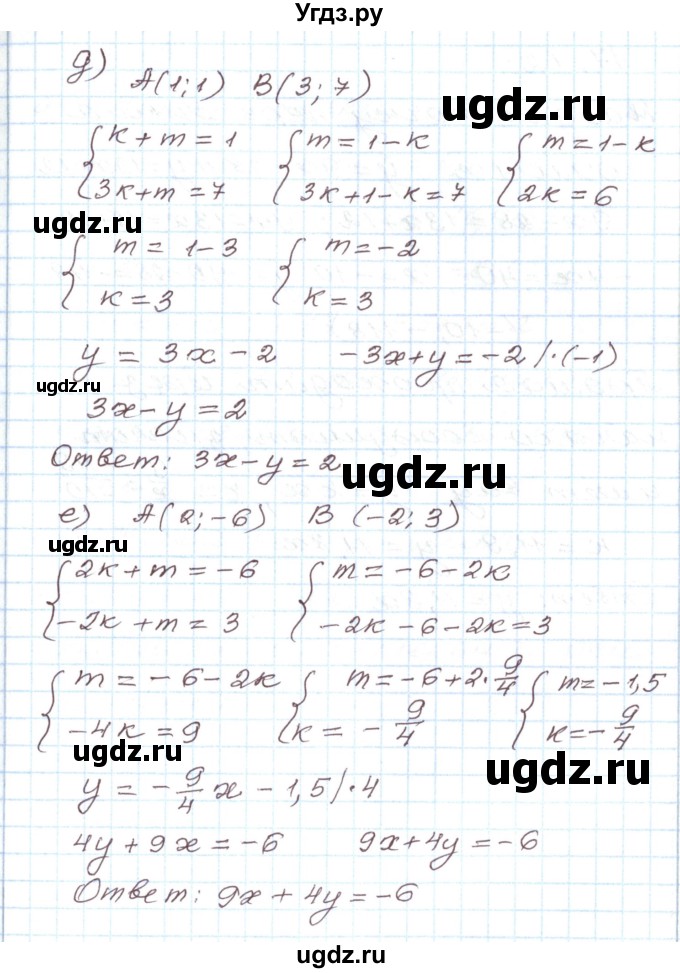 Угдз.ру
д) A(1;1) B(3;7)
ugdz.ru
{k+m=1 {m=1-k {m=1-k
{3k+m=7 {3k+1-k=7 {2k=6
ugdz.ru
{m=1-3 {m=-2
{k=3 {k=3
y=3x-2 -3x+y=-2/·(-1)
ugdz.ru
3x-y=2
Ответ: 3x-y=2
ugdz.ru
е) A(2;-6) B(-2;3)
ugdz.ru
{2k+m=-6 {m=-6-2k
{-2k+m=3 {-2k-6-2k=3
{m=-6-2k {m=-6+2·9/4 {m=-1,5
{-4k=9 {k=-9/4 {k=-9/4
ugdz.ru
ugdz.ru
y=-9/4x-1,5/·4
4y+9x=-6 9x+4y=-6
Ответ: 9x+4y=-6
ugdz.ru